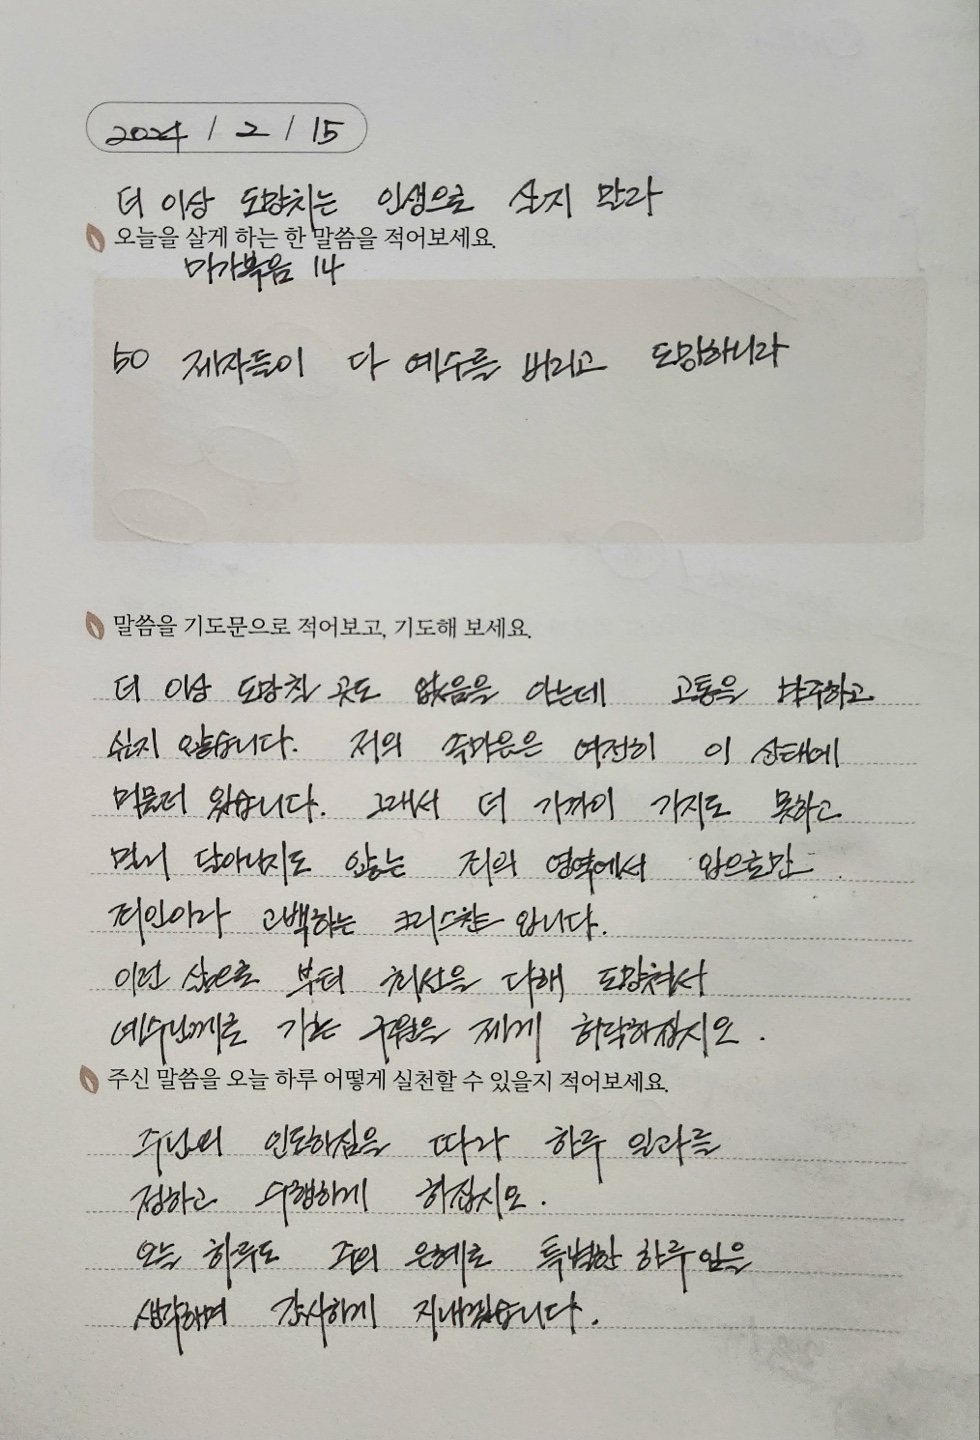 2024 / 2 / 15
더 이상 도망치는 인생으로 살지 말라
오늘을 살게 하는 한 말씀을 적어보세요.
마가복음 14
50 제자들이 다 예수를 버리고 도망하니라
말씀을 기도문으로 적어보고, 기도해 보세요.
더 이상 도망칠 곳도 없음을 아는데 고통을 마주하고
싶지 않습니다. 저의 속마음은 여전히 이 상태에
머물러 있습니다. 그래서 더 가까이 가지도 못하고
멀리 달아나지도 않는 저의 영역에서 입으로만
죄인이라 고백하는 크리스찬 입니다.
이런 삶으로 부터 최선을 다해 도망쳐서
예수님께로 가는 구원을 제게 허락하십시오.
주신 말씀을 오늘 하루 어떻게 실천할 수 있을지 적어보세요.
주님의 인도하심을 따라 하루 일과를
정하고 수행하게 하십시오.
오늘 하루도 주의 은혜로 특별한 하루임을
생각하며 감사하게 지내겠습니다.